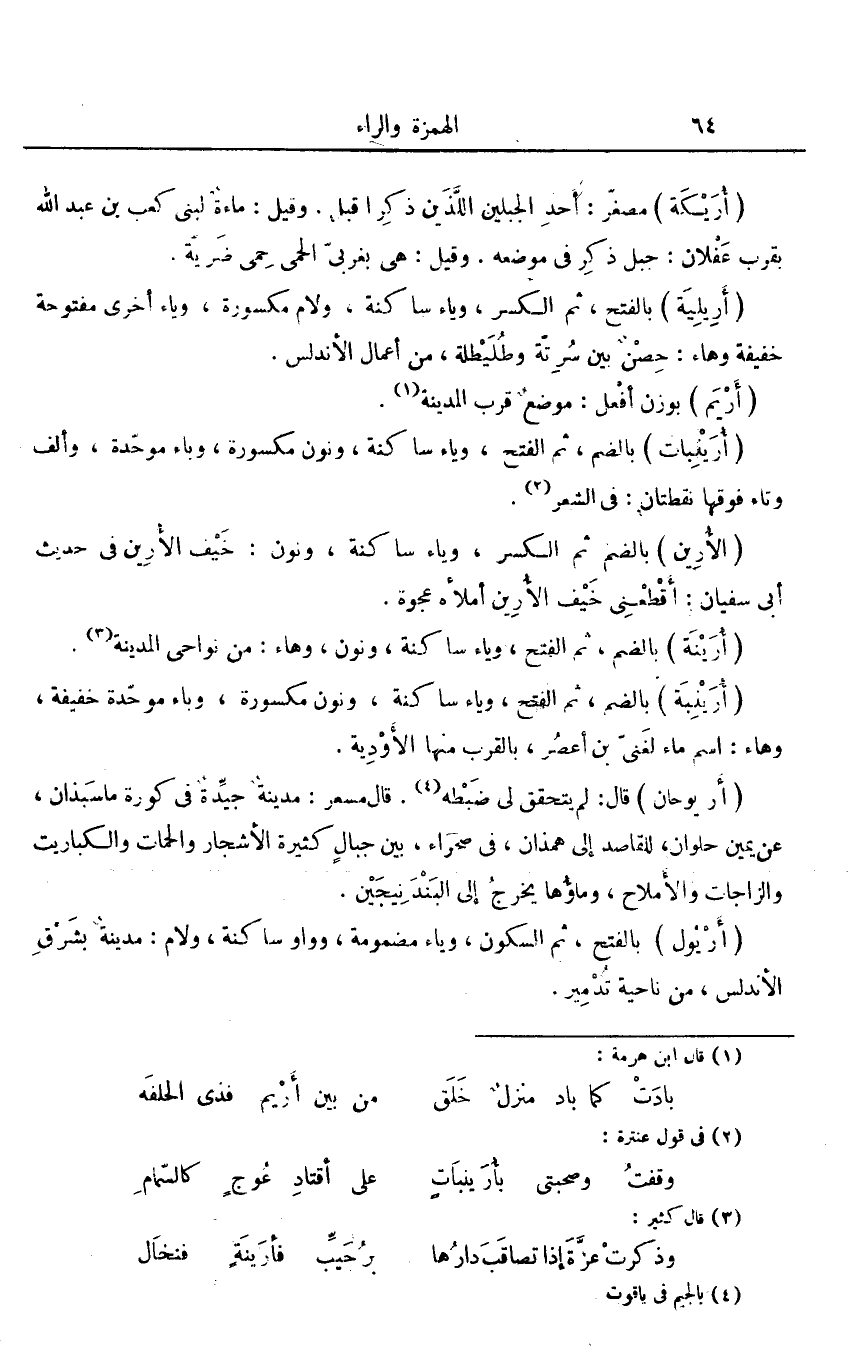 ٦٤
الهمزة والراء
( أُرَيْكَة ) مصغّر : أحد الجبلين اللَّذَين ذكِرا قبل . وقيل : ماءة لبنى كعب بن عبد الله
بقرب عَفْلان : جبل ذكِر فى موضعه . وقيل : هى بغربىّ الحمى حِمى ضَرِيّة .
( أَرِيلِيَة ) بالفتح ، ثم الكسر ، وياء ساكنة ، ولام مكسورة ، وياء أخرى مفتوحة
خفيفة وهاء : حِصْنٌ بين سُرتّة وطُلَيْطلة ، من أعمال الأندلس .
( أَرْيَم ) بوزن أفْعل : موضعٌ قرب المدينة(١) .
( أُرَيْنِبات ) بالضم ، ثم الفتح ، وياء ساكنة ، ونون مكسورة ، وباء موحّدة ، وألف
وتاء فوقها نقطتان : فى الشعر(٢) .
( الأُرِين ) بالضم ثم الكسر ، وياء ساكنة ، ونون : خَيْف الأُرِين فى حديث
أبى سفيان : أَقْطَعْنِى خَيْف الأُرِين أملأه عجوة .
( أُرَيْنَة ) بالضم ، ثم الفتح ، وياء ساكنة ، ونون ، وهاء : من نواحى المدينة(٣) .
( أُرَيْنِبَة ) بالضم ، ثم الفتح ، وياء ساكنة ، ونون مكسورة ، وباء موحّدة خفيفة ،
وهاء : اسم ماء لغَنىّ بن أعصُر ، بالقرب منها الأَوْدية .
( أريوحان ) قال: لم يتحقق لى ضَبْطه(٤) . قال مسعر : مدينة جيِّدة فى كورة ماسَبَذان ،
عن يمين حلوان، للقاصد إلى همذان ، فى صحرَاء ، بين جبالٍ كثيرة الأشجار والحمات والكباريت
والزاجات والأملاح ، وماؤها يخرجُ إلى البَنْدَنِيجَيْن .
( أَرْيُول ) بالفتح ، ثم السكون ، وياء مضمومة ، وواو ساكنة ، ولام : مدينة بشَرْقِ
الأندلس ، من ناحية تُدْمِير .
(١) قال ابن هرمة :
بادَتْ كما باد منزلٌ خَلَق من بين أَرْيم فذى الحلفَه
(٢) فى قول عنترة :
وقفتُ وصحبتى بأرَينبَاتٍ على أقتادِ عُوجٍ كالسَّمامِ
(٣) قال كثير :
وذكرتُ عزَّةَ إذا تصاقَبَ دارُها برُحَيِّبٍ فأرَينَةٍ فنخَال
(٤) بالجيم فى ياقوت